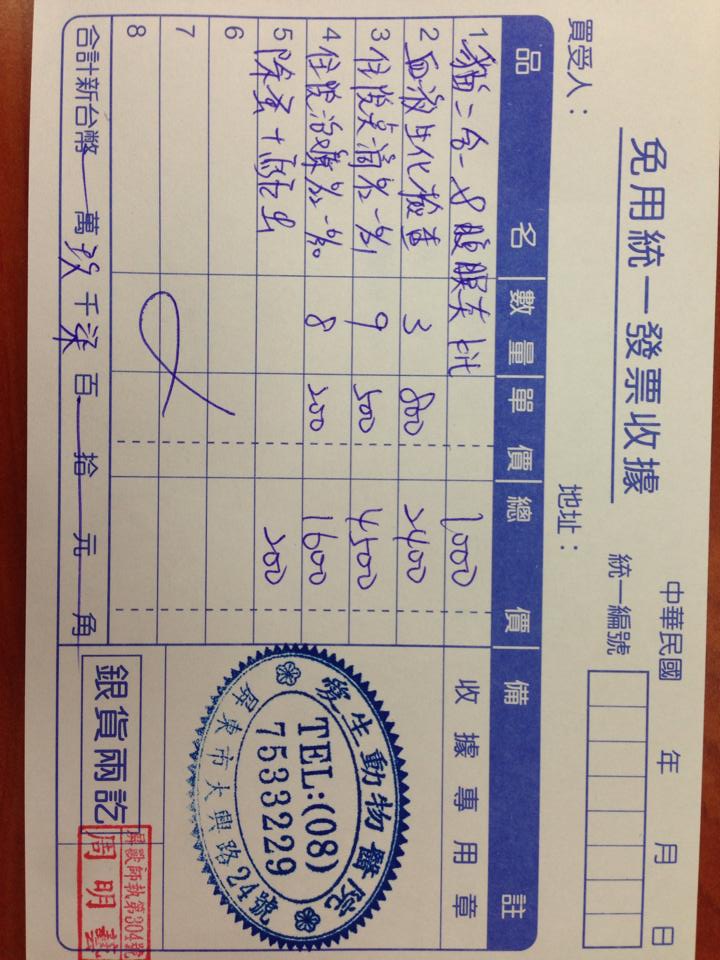 免用統一發票收據
中華民國 年 月 日
統一編號
買受人：
地址：
品名 數量 單價 總價 備註
1 貓二合一 1000
2 血液生化檢查 3 800 2400
3 住院點滴 9 500 4500
4 住院治療 8 200 1600
5 除蚤+ 200
6
7
8
合計新台幣 萬 玖 千 柒 百 拾 元 角
收據專用章
愛生動物醫院
TEL:(08)
7533229
屏東市大興路24號
銀貨兩訖
獸醫師執第304號
周明